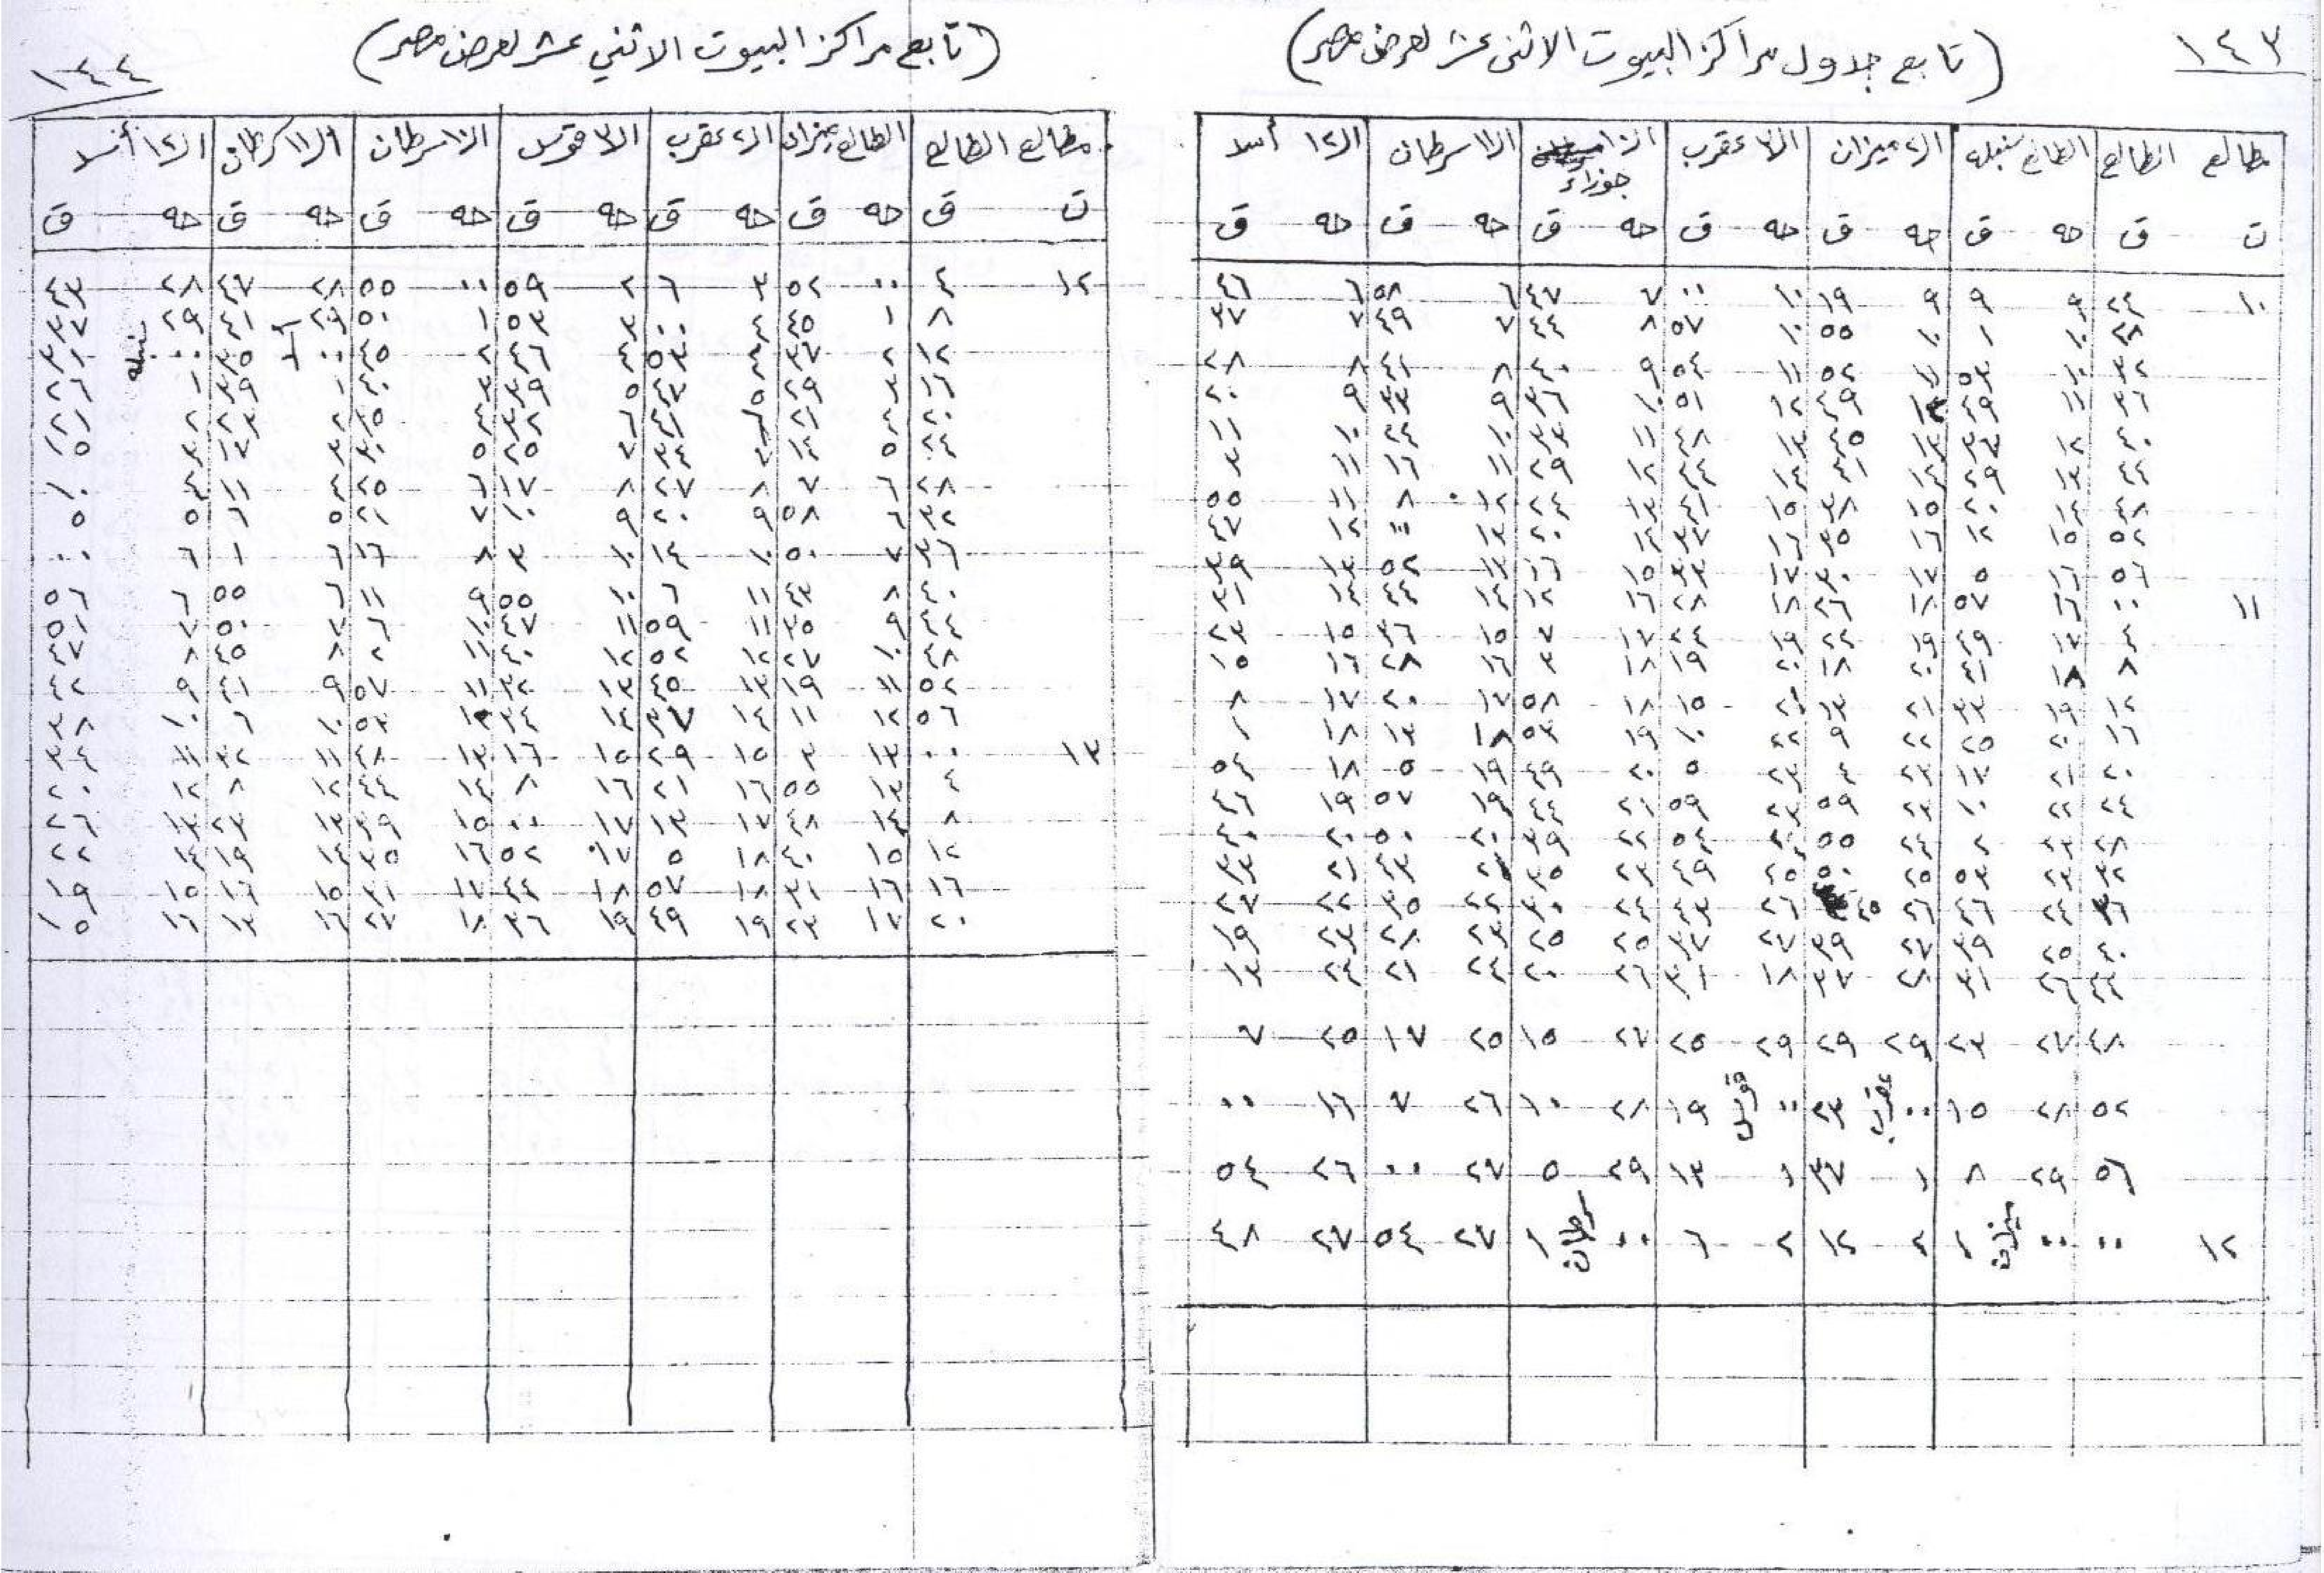 ١٤٣
(تابع جداول مراكز البيوت الاثنى عشر لعرض مصر)
مطالع الطالع الطالع سنبله ال٢ ميزان ال٣ عقرب ال١٠ جوزاء ال١١ سرطان ال١٢ أسد
ت ق حه ق حه ق حه ق حه ق حه ق حه ق
١٠ ٢٤ ٩ ٩ ٩ ١٩ ١٠ ٠٠ ٧ ٤٧ ٦ ٥٨ ٦ ٤٦
٢٨ ١٠ ١ ١٠ ٥٥ ١٠ ٥٧ ٨ ٤٤ ٧ ٤٩ ٧ ٣٧
٣٢ ١٠ ٥٣ ١١ ٥٢ ١١ ٥٤ ٩ ٤٠ ٨ ٤١ ٨ ٢٨
٣٦ ١١ ٤٩ ١٢ ٤٩ ١٢ ٥١ ١٠ ٣٦ ٩ ٣٣ ٩ ٢٠
٤٠ ١٢ ٣٧ ١٣ ٤٥ ١٣ ٤٨ ١١ ٣٣ ١٠ ٢٤ ١٠ ١١
٤٤ ١٣ ٢٩ ١٤ ٤١ ١٤ ٤٤ ١٢ ٢٩ ١١ ١٦ ١١ ٣
٤٨ ١٤ ٢٠ ١٥ ٣٨ ١٥ ٤١ ١٣ ٢٤ ١٢ ٨ ١١ ٥٥
٥٢ ١٥ ١٢ ١٦ ٣٥ ١٦ ٣٧ ١٤ ٢٠ ١٣ ٠٠ ١٢ ٤٧
٥٦ ١٦ ٥ ١٧ ٣٠ ١٧ ٣٣ ١٥ ١٦ ١٣ ٥٢ ١٣ ٣٩
١١ ٠٠ ١٦ ٥٧ ١٨ ٢٦ ١٨ ٢٨ ١٦ ١٢ ١٤ ٤٤ ١٤ ٣١
٤ ١٧ ٤٩ ١٩ ٢٢ ١٩ ٢٤ ١٧ ٧ ١٥ ٣٦ ١٥ ٢٣
٨ ١٨ ٤١ ٢٠ ١٨ ٢٠ ١٩ ١٨ ٣ ١٦ ٢٨ ١٦ ١٥
١٢ ١٩ ٣٣ ٢١ ١٣ ٢١ ١٥ ١٨ ٥٨ ١٧ ٢٠ ١٧ ٨
١٦ ٢٠ ٢٥ ٢٢ ٩ ٢٢ ١٠ ١٩ ٥٣ ١٨ ١٣ ١٨ ١
٢٠ ٢١ ١٧ ٢٣ ٤ ٢٣ ٥ ٢٠ ٤٩ ١٩ ٥ ١٨ ٥٤
٢٤ ٢٢ ١٠ ٢٣ ٥٩ ٢٣ ٥٩ ٢١ ٤٤ ١٩ ٥٧ ١٩ ٤٦
٢٨ ٢٣ ٢ ٢٤ ٥٥ ٢٤ ٥٤ ٢٢ ٣٩ ٢٠ ٥٠ ٢٠ ٤٠
٣٢ ٢٣ ٥٣ ٢٥ ٥٠ ٢٥ ٤٩ ٢٣ ٣٥ ٢١ ٤٣ ٢١ ٣٣
٣٦ ٢٤ ٤٦ ٢٦ ٤٥ ٢٦ ٤٣ ٢٤ ٣٠ ٢٢ ٣٥ ٢٢ ٢٧
٤٠ ٢٥ ٣٩ ٢٧ ٣٩ ٢٧ ٣٧ ٢٥ ٢٥ ٢٣ ٢٨ ٢٣ ١٩
٤٤ ٢٦ ٣١ ٢٨ ٣٧ ١٨ ٣١ ٢٦ ٢٠ ٢٤ ٢١ ٢٤ ١٣
٤٨ ٢٧ ٢٣ ٢٩ ٢٩ ٢٩ ٢٥ ٢٧ ١٥ ٢٥ ١٧ ٢٥ ٧
٥٢ ٢٨ ١٥ ٠٠ عقرب ٢٣ ٠٠ قوس ١٩ ٢٨ ١٠ ٢٦ ٧ ١٦ ٠٠
٥٦ ٢٩ ٨ ١ ٣٧ ١ ١٣ ٢٩ ٥ ٢٧ ٠٠ ٢٦ ٥٤
١٢ ٠٠ ٠٠ ميزان ١ ٢ ١٢ ٢ ٦ ٠٠ سرطان ١ ٢٧ ٥٤ ٢٧ ٤٨
١٤٤
(تابع مراكز البيوت الاثني عشر لعرض مصر)
مطالع الطالع الطالع ميزان ال٢ عقرب ال٣ قوس ال١٠ سرطان ال١١ سرطان ال١٢ أسد
ت ق حه ق حه ق حه ق حه ق حه ق حه ق
١٢ ٤ ٠٠ ٥٢ ٣ ٦ ٢ ٥٩ ٠٠ ٥٥ ٢٨ ٤٧ ٢٨ ٤٣
٨ ١ ٤٥ ٤ ٠٠ ٣ ٥٣ ١ ٥٠ ٢٩ ٤١ ٢٩ ٣٧
١٢ ٢ ٣٧ ٤ ٥٣ ٤ ٤٦ ٢ ٤٥ ٠٠ أسد ٣٥ ٠٠ سنبله ٣١
١٦ ٣ ٢٩ ٥ ٤٧ ٥ ٣٩ ٣ ٤٠ ١ ٢٩ ١ ٢٦
٢٠ ٤ ٢١ ٦ ٤١ ٦ ٣٢ ٤ ٣٥ ٢ ٢٣ ٢ ٢١
٢٤ ٥ ١٤ ٧ ٣٤ ٧ ٢٥ ٥ ٣٠ ٣ ١٧ ٣ ١٥
٢٨ ٦ ٧ ٨ ٢٧ ٨ ١٧ ٦ ٢٥ ٤ ١١ ٤ ١٠
٣٢ ٦ ٥٨ ٩ ٢٠ ٩ ١٠ ٧ ٢١ ٥ ٦ ٥ ٥
٣٦ ٧ ٥٠ ١٠ ١٤ ١٠ ٣ ٨ ١٦ ٦ ١ ٦ ٠٠
٤٠ ٨ ٤٣ ١١ ٦ ١٠ ٥٥ ٩ ١١ ٦ ٥٥ ٦ ٥٦
٤٤ ٩ ٣٥ ١١ ٥٩ ١١ ٤٧ ١٠ ٦ ٧ ٥٠ ٧ ٥١
٤٨ ١٠ ٢٧ ١٢ ٥٢ ١٢ ٤٠ ١١ ٢ ٨ ٤٥ ٨ ٤٧
٥٢ ١١ ١٩ ١٣ ٤٥ ١٣ ٣٢ ١١ ٥٧ ٩ ٤١ ٩ ٤٢
٥٦ ١٢ ١١ ١٤ ٣٧ ١٤ ٢٤ ١٢ ٥٣ ١٠ ٦ ١٠ ٣٨
١٣ ٠٠ ١٣ ٣ ١٥ ٢٩ ١٥ ١٦ ١٣ ٤٨ ١١ ٣٢ ١١ ٣٤
٤ ١٣ ٥٥ ١٦ ٢١ ١٦ ٨ ١٤ ٤٤ ١٢ ٨ ١٢ ٢٠
٨ ١٤ ٤٨ ١٧ ١٣ ١٧ ٠٠ ١٥ ٣٩ ١٣ ٢٣ ١٣ ٢٦
١٢ ١٥ ٤٠ ١٨ ٥ ١٧ ٥٢ ١٦ ٣٥ ١٤ ١٩ ١٤ ٢٢
١٦ ١٦ ٣١ ١٨ ٥٧ ١٨ ٤٤ ١٧ ٣١ ١٥ ١٦ ١٥ ١٩
٢٠ ١٧ ٢٣ ١٩ ٤٩ ١٩ ٣٦ ١٨ ٢٧ ١٦ ١٣ ١٦ ١٥